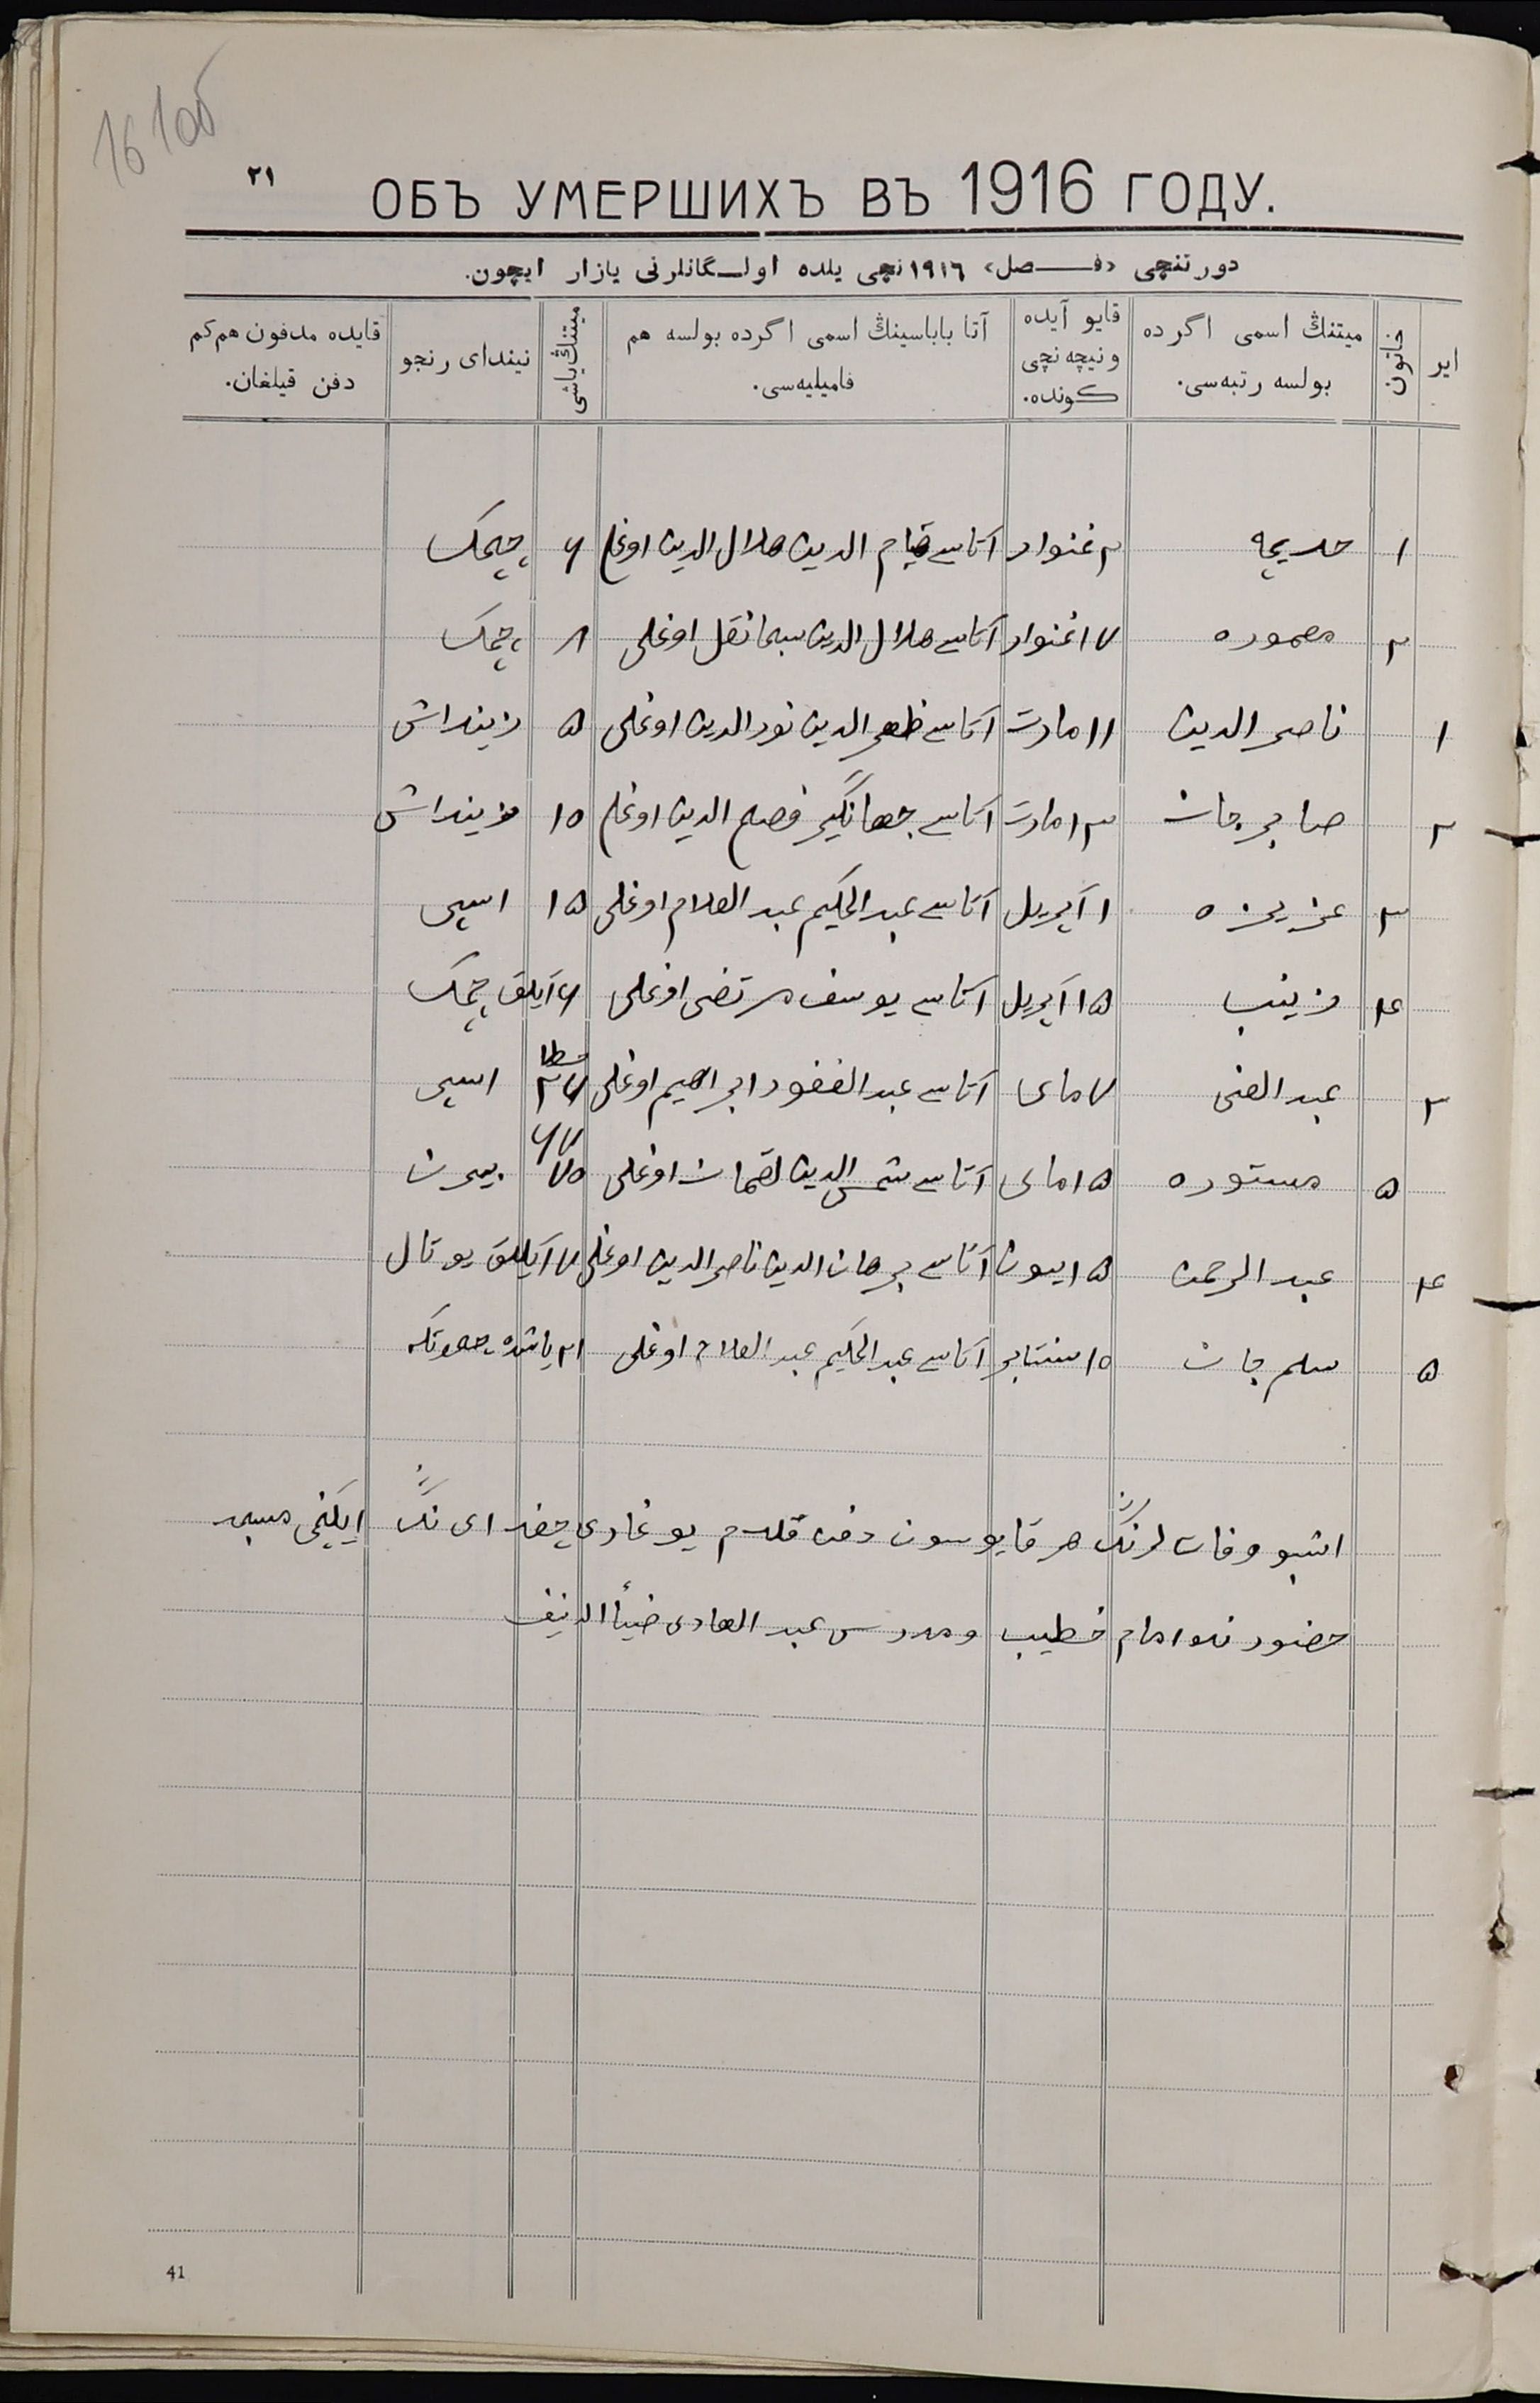 16 1об
٢١
ОБЪ УМЕРШИХЪ ВЪ 1916 ГОДУ.
دورتنچی «فـصل» ١٩١٦نچی یلده اولـگانلرنی یازار ایچون.
ایر
خاتون
میتنڭ اسمی اگرده بولسه رتبه‌سی.
قایو آیده ونیچه نچی کونده.
آتا باباسینڭ اسمی اگرده بولسه هم فامیلیه‌سی.
میتنڭ یاشی
نیندای رنجو
قایده مدفون هم کم دفن قیلغان.
١ خدیجه ٣ غنوار آتاسی قیام الدین هلال الدین اوغلی ٦ چیچک
٢ معموره ١٧ غنوار آتاسی هلال الدین اوغلی ٨ چیچک
١ ناصر الدین ١١ مارت آتاسی ظهیر الدین نورالدین اوغلی ٥
٢ صابرجان ١٣ مارت آتاسی جهانگیر فصیح الدین اوغلی
٣ عزیزه ١ آپریل آتاسی عبد الحکیم عبد العلام اوغلی ١٥ اسپی
٤ زینب ١٥ آپریل آتاسی یوسف مرتضی اوغلی ٦ آیلق چیچک
٣ عبد الغنی ٧ مای آتاسی عبد الغفور ابراهیم اوغلی خطا ٢٦ اسپی
٥ مستوره ١٥ مای آتاسی شمس الدین لقمان اوغلی
٤ عبد الرحمن ١٥ اییون آتاسی برهان الدین ناصر الدین اوغلی ٧ آیلق یوتال
٥ سلیم جان سنتابر آتاسی عبد الحکیم عبد العلام اوغلی
اشبو وفات لرنڭ هر قایوسون دفن قلدم یوغاری چغدای نڭ ایکنچی مسجد
حضورنده امام خطیب ومدرس عبد الهادی ضیأالدینف
41